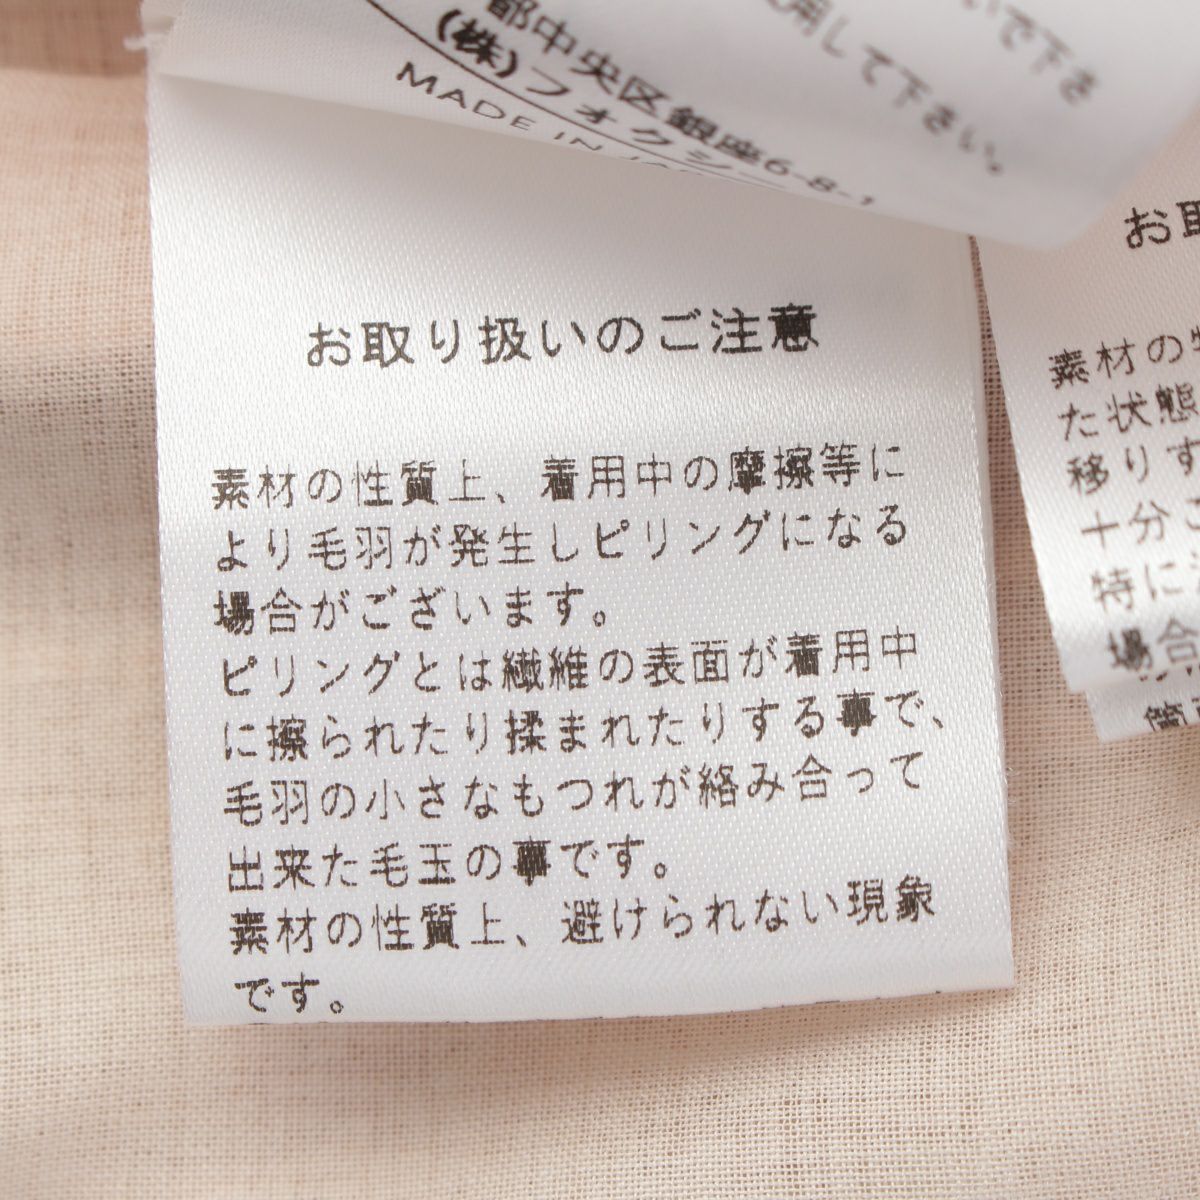 いで下さ
用して下さい。
都中央区銀座6-8-1
(株)フォクシー
MADE IN JA
お取り扱いのご注意
素材の性質上、着用中の摩擦等に
より毛羽が発生しピリングになる
場合がございます。
ピリングとは繊維の表面が着用中
に擦られたり揉まれたりする事で、
毛羽の小さなもつれが絡み合って
出来た毛玉の事です。
素材の性質上、避けられない現象
です。
お取
素材の
た状態
移りす
十分
特に
場合